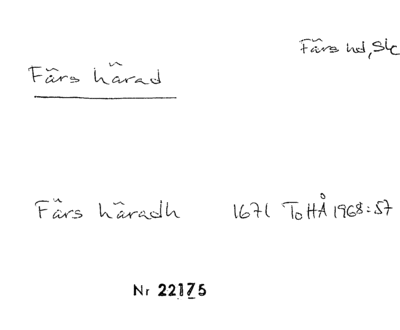 Färs hd, Sk
Färs härad
Färs häradh 1671 ToHÅ 1968:57
Nr 22175